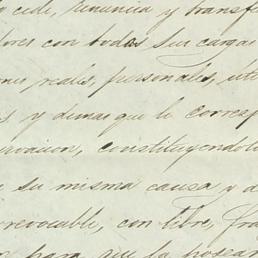 cede, renuncia y transfe
dores con todas sus cargas
ones reales, personales, uti
s y demas que le corresp
ervacion, constituyendolo
su misma causa y d
rrevocable, con libre, fra
para que la posean